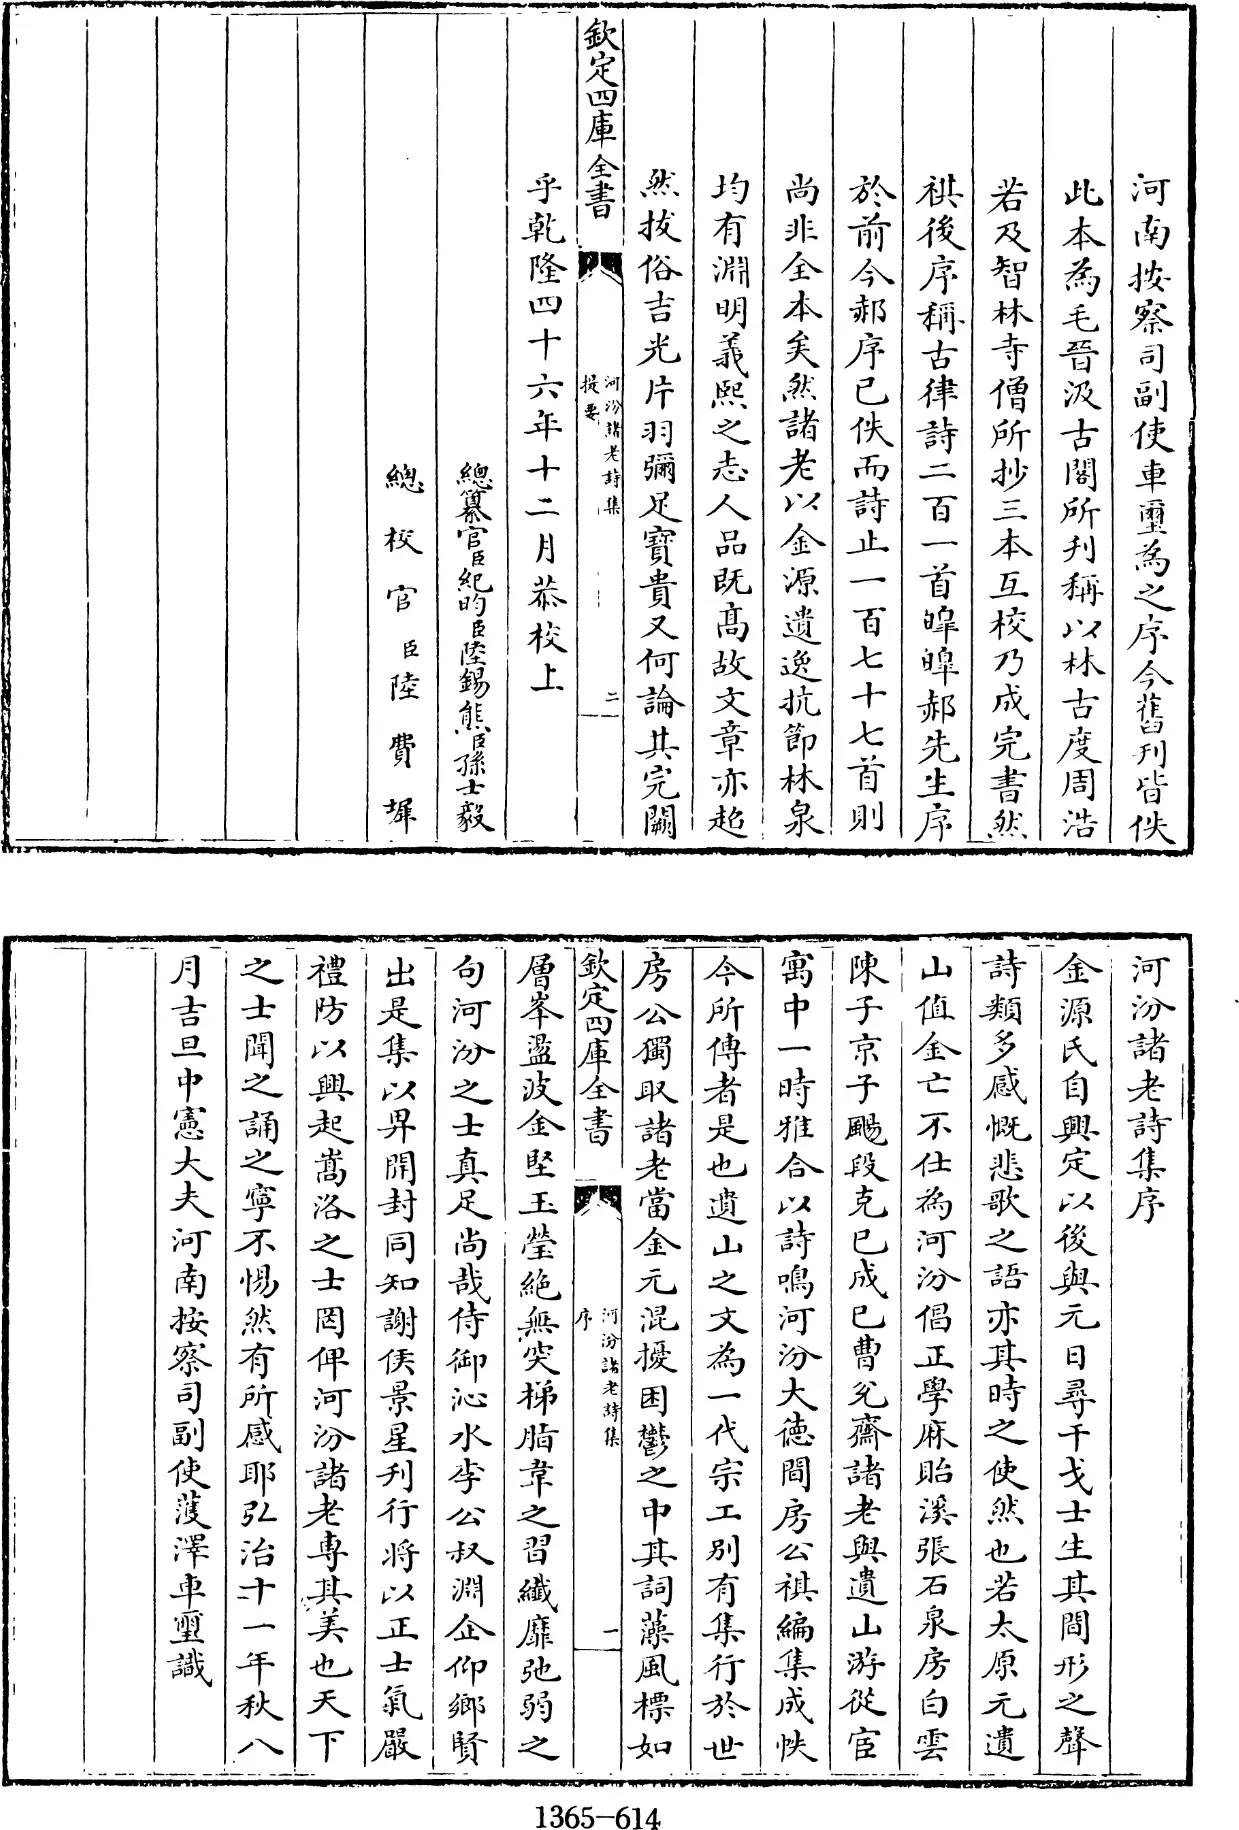 河南按察司副使車璽為之序今舊刊皆佚
此本為毛晉汲古閣所刊稱以林古度周浩
若及智林寺僧所抄三本互校乃成完書然
祺後序稱古律詩二百一首皥皥郝先生序
於前今郝序已佚而詩止一百七十七首則
尚非全本矣然諸老以金源遺逸抗節林泉
均有淵明義熙之志人品既高故文章亦超
然拔俗吉光片羽彌足寶貴又何論其完闕
欽定四庫全書
河汾諸老詩集
提要
二
乎乾隆四十六年十二月恭校上
總纂官臣紀昀臣陸錫熊臣孫士毅
總校官臣陸費墀
河汾諸老詩集序
金源氏自興定以後與元日尋干戈士生其間形之聲
詩類多感慨悲歌之語亦其時之使然也若太原元遺
山值金亡不仕為河汾倡正學麻貽溪張石泉房白雲
陳子京子颺段克己成己曹兌齋諸老與遺山游從宦
寓中一時雅合以詩鳴河汾大徳間房公祺編集成帙
今所傳者是也遺山之文為一代宗工別有集行於世
房公獨取諸老當金元混擾困鬱之中其詞藻風標如
欽定四庫全書
河汾諸老詩集
序
一
層峯盪波金堅玉瑩絶無突梯脂韋之習纖靡弛弱之
句河汾之士真足尚哉侍御沁水李公叔淵企仰鄉賢
出是集以畀開封同知謝侯景星刋行將以正士氣嚴
禮防以興起嵩洛之士罔俾河汾諸老専其美也天下
之士聞之誦之寧不惕然有所感耶弘治十一年秋八
月吉旦中憲大夫河南按察司副使䕶澤車璽識
1365-614